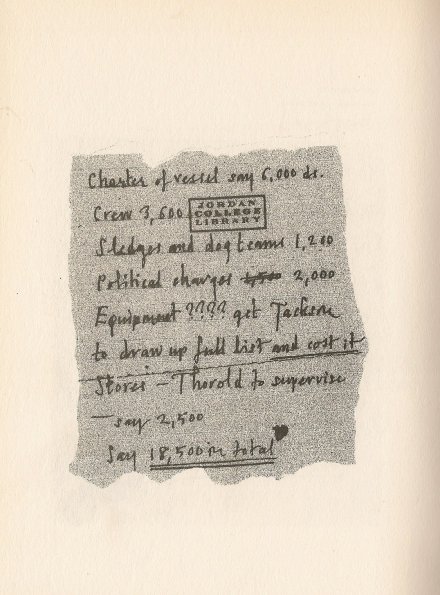 Charter of vessel say 6,000 ds.
Crew 3,600
JORDAN
COLLEGE
LIBRARY
Sledges and dog teams 1,200
Political charges 1,500 2,000
Equipment ???? get Jackson
to draw up full list and cost it
Stores – Thorold to supervise
— say 2,500
Say 18,500 in total